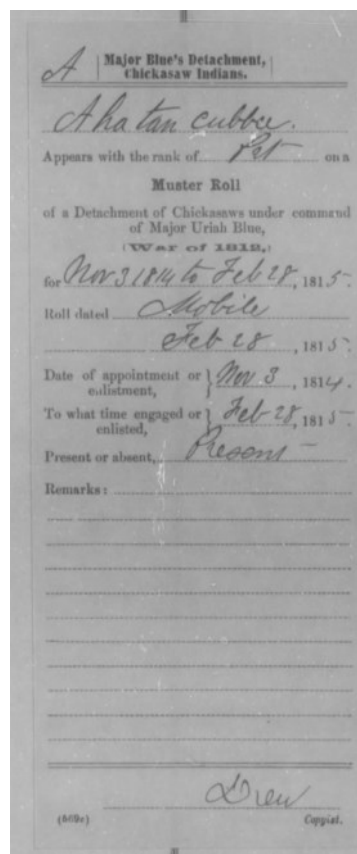 A | Major Blue's Detachment, |
Chickasaw Indians.
Ahatan cubbee.
Appears with the rank of Pvt on a
Muster Roll
of a Detachment of Chickasaws under command
of Major Uriah Blue,
(War of 1812,)
for Nov 3 1814 to Feb 28, 1815.
Roll dated Mobile
Feb 28, 1815.
Date of appointment or } Nov 3, 1814.
enlistment,
To what time engaged or } Feb 28, 1815.
enlisted,
Present or absent, Present
Remarks:
Drew
(669c) Copyist.